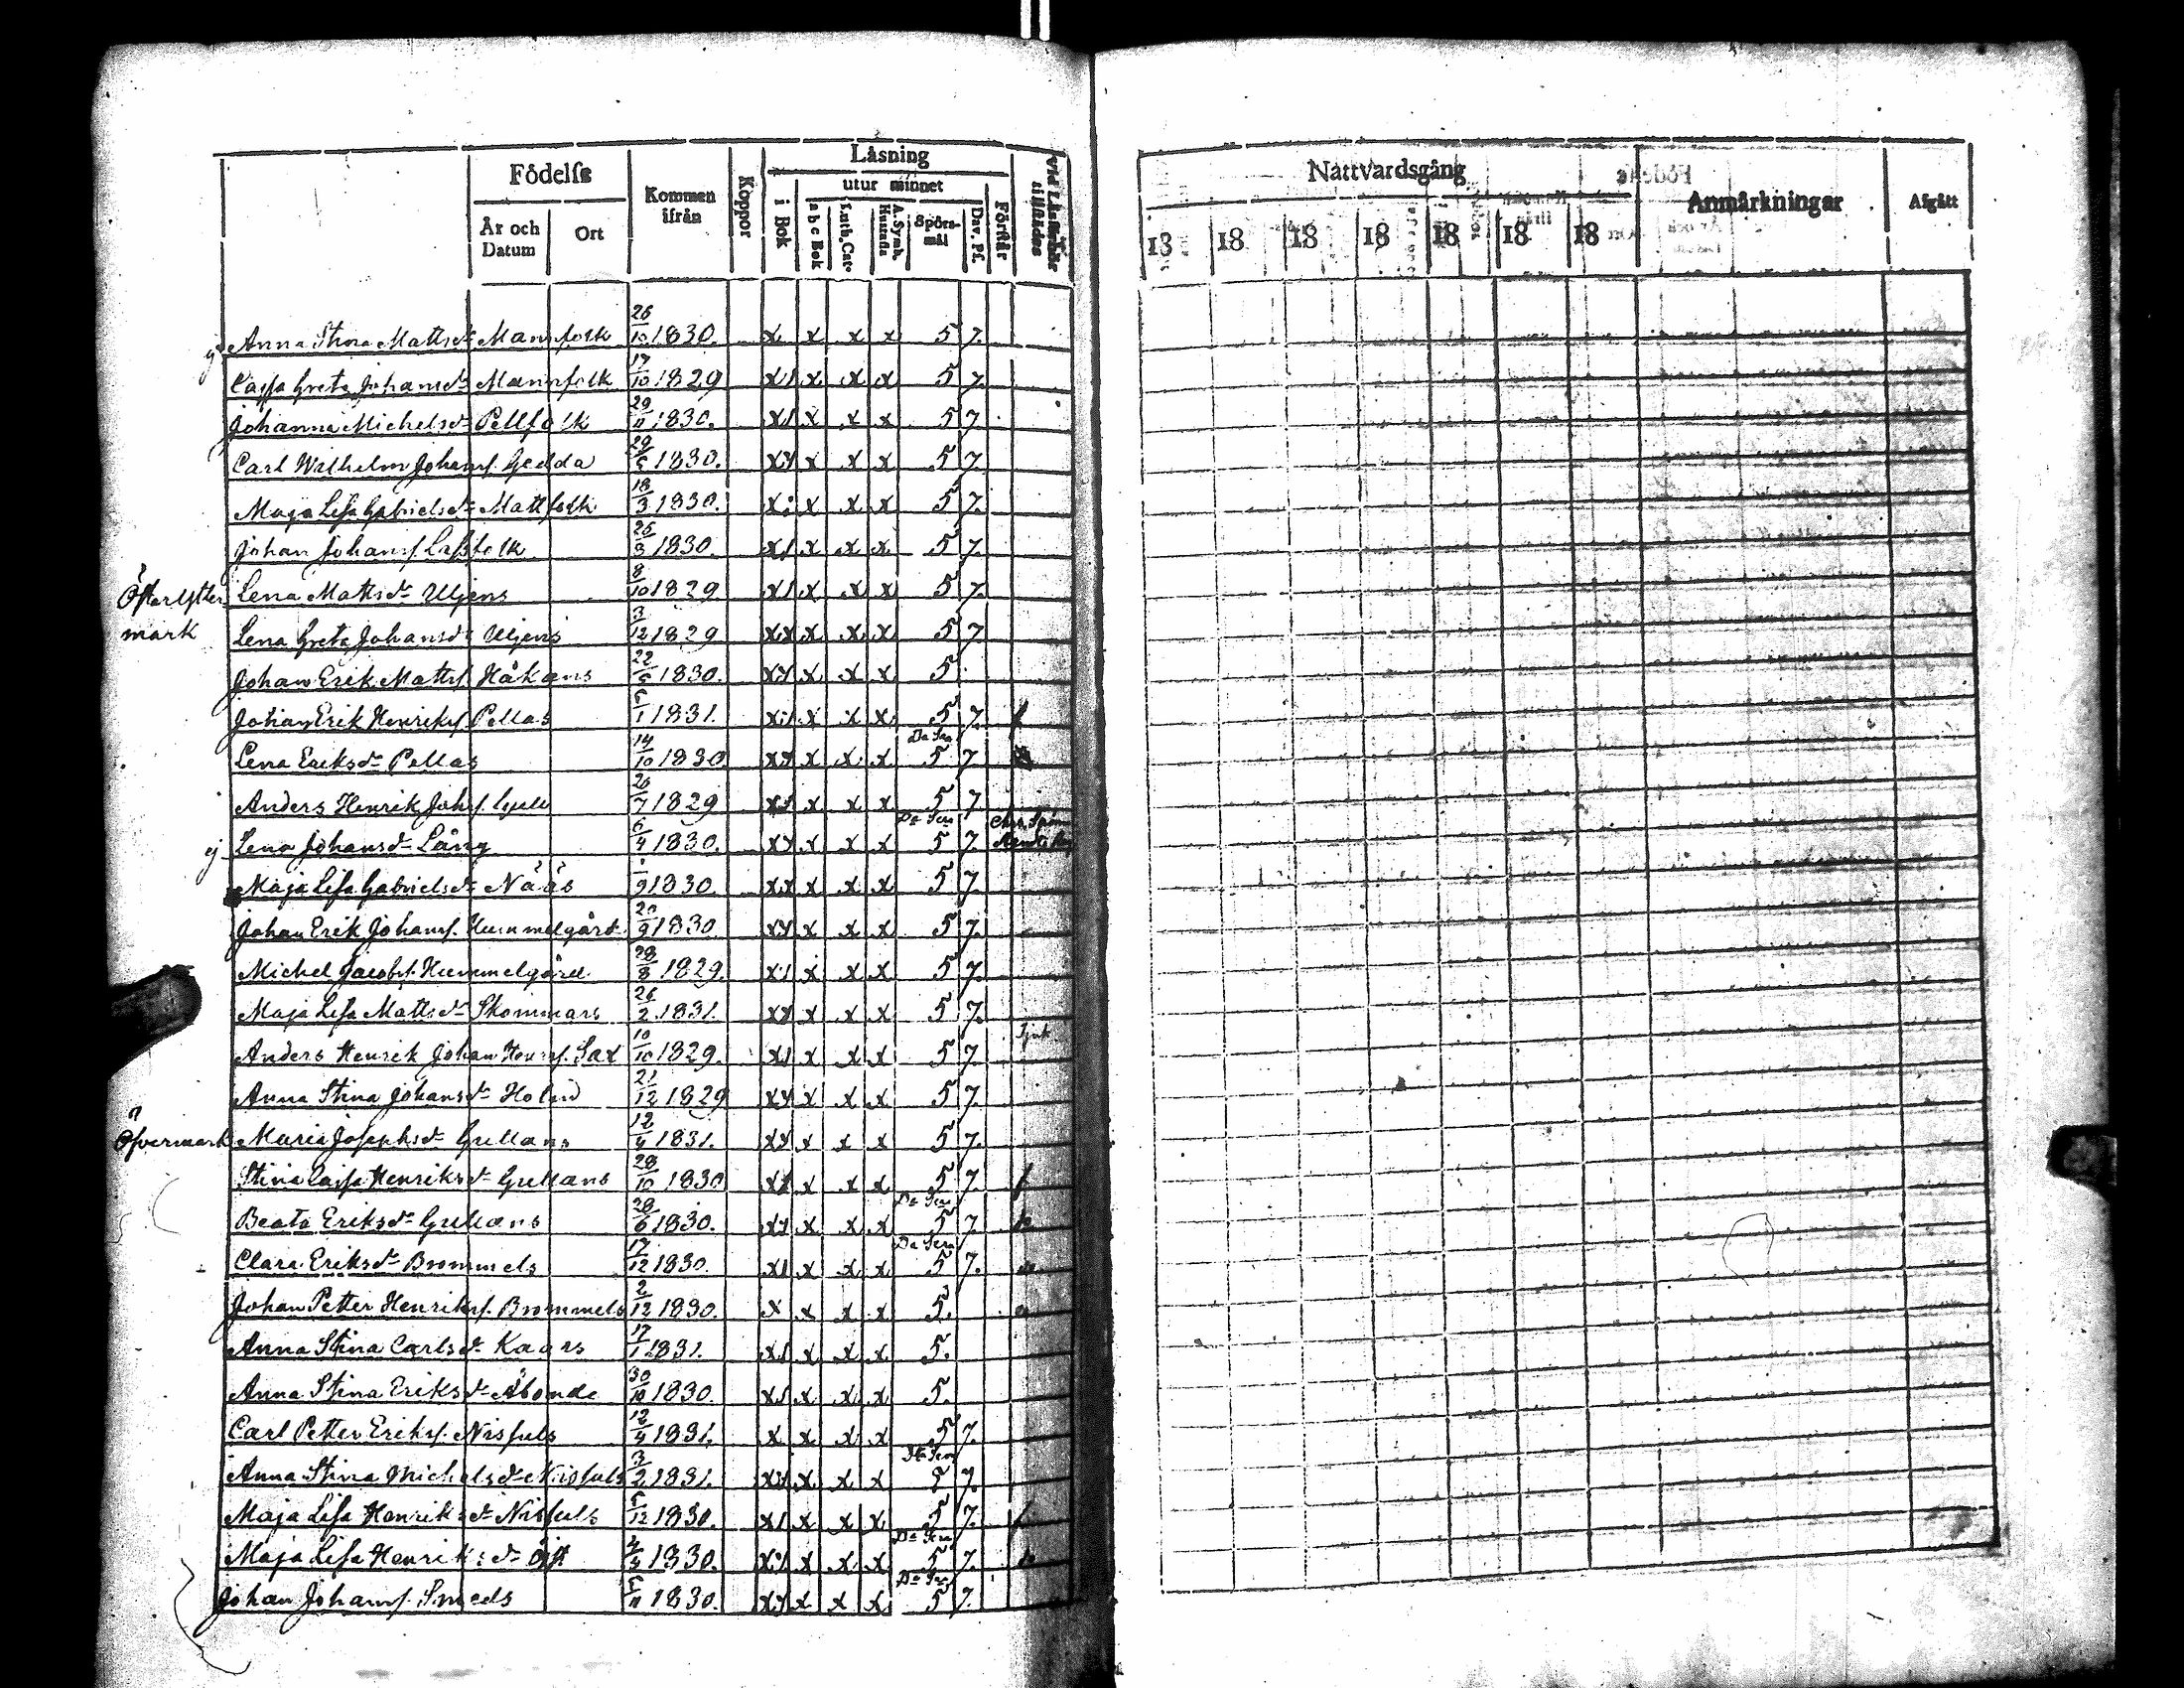 Födelse
Kommen ifrån
Koppor
Läsning
utur minnet
År och Datum
Ort
i Bok
a b c Bok
Luth. Cat.
A. Symb. Hustafla
Spörs-mål
Dav. Ps.
Förstår
Anna Stina Mattsdr Mannfolk 26/10 1830. x x x x 5 7.
Cajsa Greta Johansdr Mannfolk 17/10 1829 x x x x 5 7.
Johanna Michelsdr Pellfolk 29/11 1830. x x x x 5 7.
Carl Wilhelm Johans. Gedda 29/5 1830. x x x x 5 7.
Maja Lisa Gabrielsdr Mattfolk 18/3 1830. x x x x 5 7.
Johan Johans. Lassfolk 26/3 1830. x x x x 5 7.
Öfter Ytter Lena Mattsdr Uljens 8/10 1829. x x x x 5 7.
mark Lena Greta Johansdr Uljens 3/12 1829 x x x x 5 7
Johan Erik Matts. Håkans 22/5 1830. x x x x 5
Johan Erik Henriks. Pellas 1831. x x x x 5 7.
Lena Eriksdr Pellas 14/10 1830 x x x x 5 7
Anders Henrik Johs. 26/7 1829 x x x x 5 7
ej Lena Johansdr Lång 6/4 1830. x x x x 5 7.
Maja Lisa Gabrielsdr Nääs /9 1830. x x x x 5 7
Johan Erik Johans. Hummelgård 20/9 1830. x x x x 5 7.
Michel Jacobs. Hummelgård 28/8 1829. x x x x 5 7.
Maja Lisa Mattsdr Skommars 26/2 1831. x x x x 5 7.
Anders Henrik Johan Henrs. Sax 10/10 1829. x x x x 5 7. Sjuk
Anna Stina Johansdr 21/12 1829 x x x x 5 7.
Öfvermark Maria Josephsdr Gullans 12/4 1831. x x x x 5 7.
Stina Cajsa Henriksdr Gullans 28/10 1830 x x x x 5 7.
Beata Eriksdr Gullans 28/6 1830. x x x x 5 7
Clara Eriksdr Brommels 17/12 1830. x x x x 5 7.
Johan Petter Henriks. Brommels 2/12 1830. x x x x 5.
Anna Stina Carlsdr Kaars 17/1 1831. x x x x 5.
Anna Stina Eriksdr Åbonde 30/10 1830. x x x x 5.
Carl Petter Eriks. Nisfuls 12/4 1831. x x x x 5 7.
Anna Stina Michelsdr Nisfuls 3/2 1831. x x x x 5 7.
Maja Lisa Henriksdr Nisfuls 5/12 1830. x x x x 5 7.
Maja Lisa Henriksdr 1830. x x x x 5 7.
Johan Johans. Smeds 5/11 1830. x x x x 5 7.
Nattvardsgång
Anmärkningar
Afgått
18 18 18 18 18 18 18